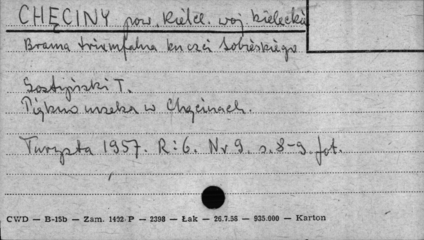 CHĘCINY pow. Kielc. woj. kieleckie
Brama triumfalna ku czci Sobieskiego
Gostyński T.
Piękno urzeka w Chęcinach.
Turysta 1957. R: 6. Nr 9. s. 8-9. fot.
CWD — B-15b — Zam. 1422/P — 2398 — Łak — 26.7.58 — 935.000 — Karton